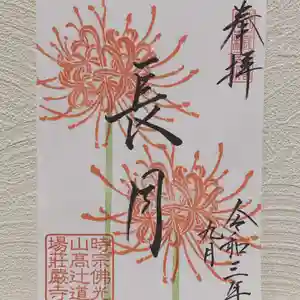 奉拝
長月
令和三年
九月
時宗佛光
山高辻道
場荘厳寺